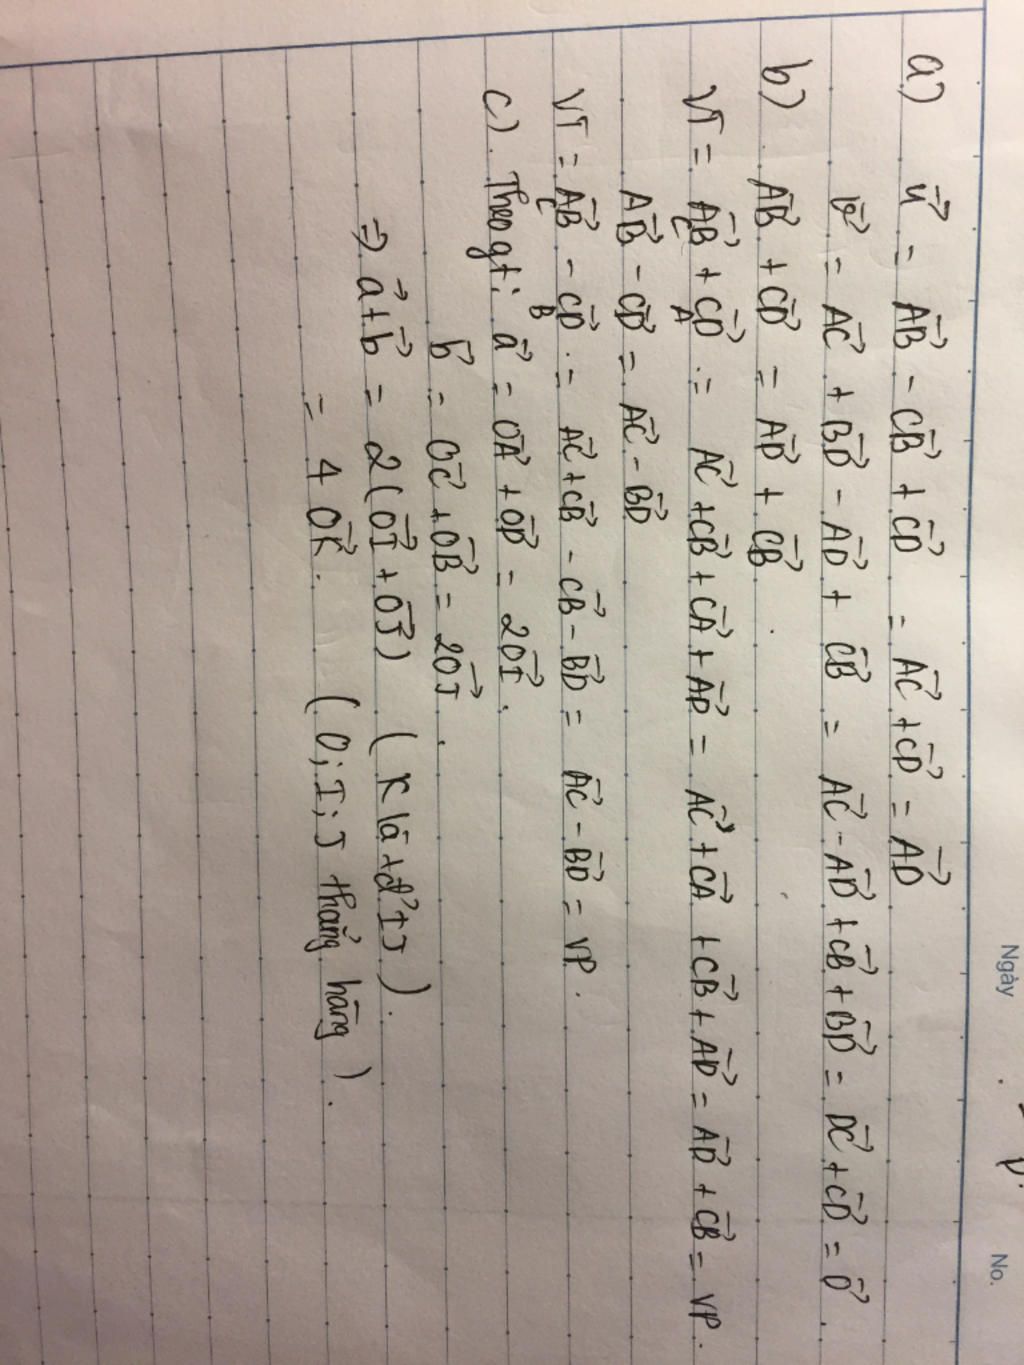 Ngày
No.
a) u⃗ = AB⃗ - CB⃗ + CD⃗ = AC⃗ + CD⃗ = AD⃗
v⃗ = AC⃗ + BD⃗ - AD⃗ + CB⃗ = AC⃗ - AD⃗ + CB⃗ + BD⃗ = DC⃗ + CD⃗ = 0⃗.
b) AB⃗ + CD⃗ = AD⃗ + CB⃗.
VT = AB⃗ + CD⃗ = AC⃗ + CB⃗ + CA⃗ + AD⃗ = AC⃗ + CA⃗ + CB⃗ + AD⃗ = AD⃗ + CB⃗ = VP.
C A
AB⃗ - CD⃗ = AC⃗ - BD⃗
VT = AB⃗ - CD⃗ = AC⃗ + CB⃗ - CB⃗ - BD⃗ = AC⃗ - BD⃗ = VP.
C B
c). Theo gt: a⃗ = OA⃗ + OD⃗ = 2OI⃗.
b⃗ = OC⃗ + OB⃗ = 2OJ⃗.
⇒ a⃗ + b⃗ = 2(OI⃗ + OJ⃗) (K là tđ IJ).
= 4OK⃗. (O; I; J thẳng hàng).